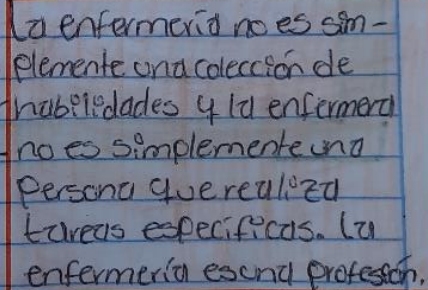 La enfermería no es sim-
plemente una colección de
habilidades y la enfermera
no es simplemente una
persona que realiza
tareas específicas. La
enfermería es una profesión.